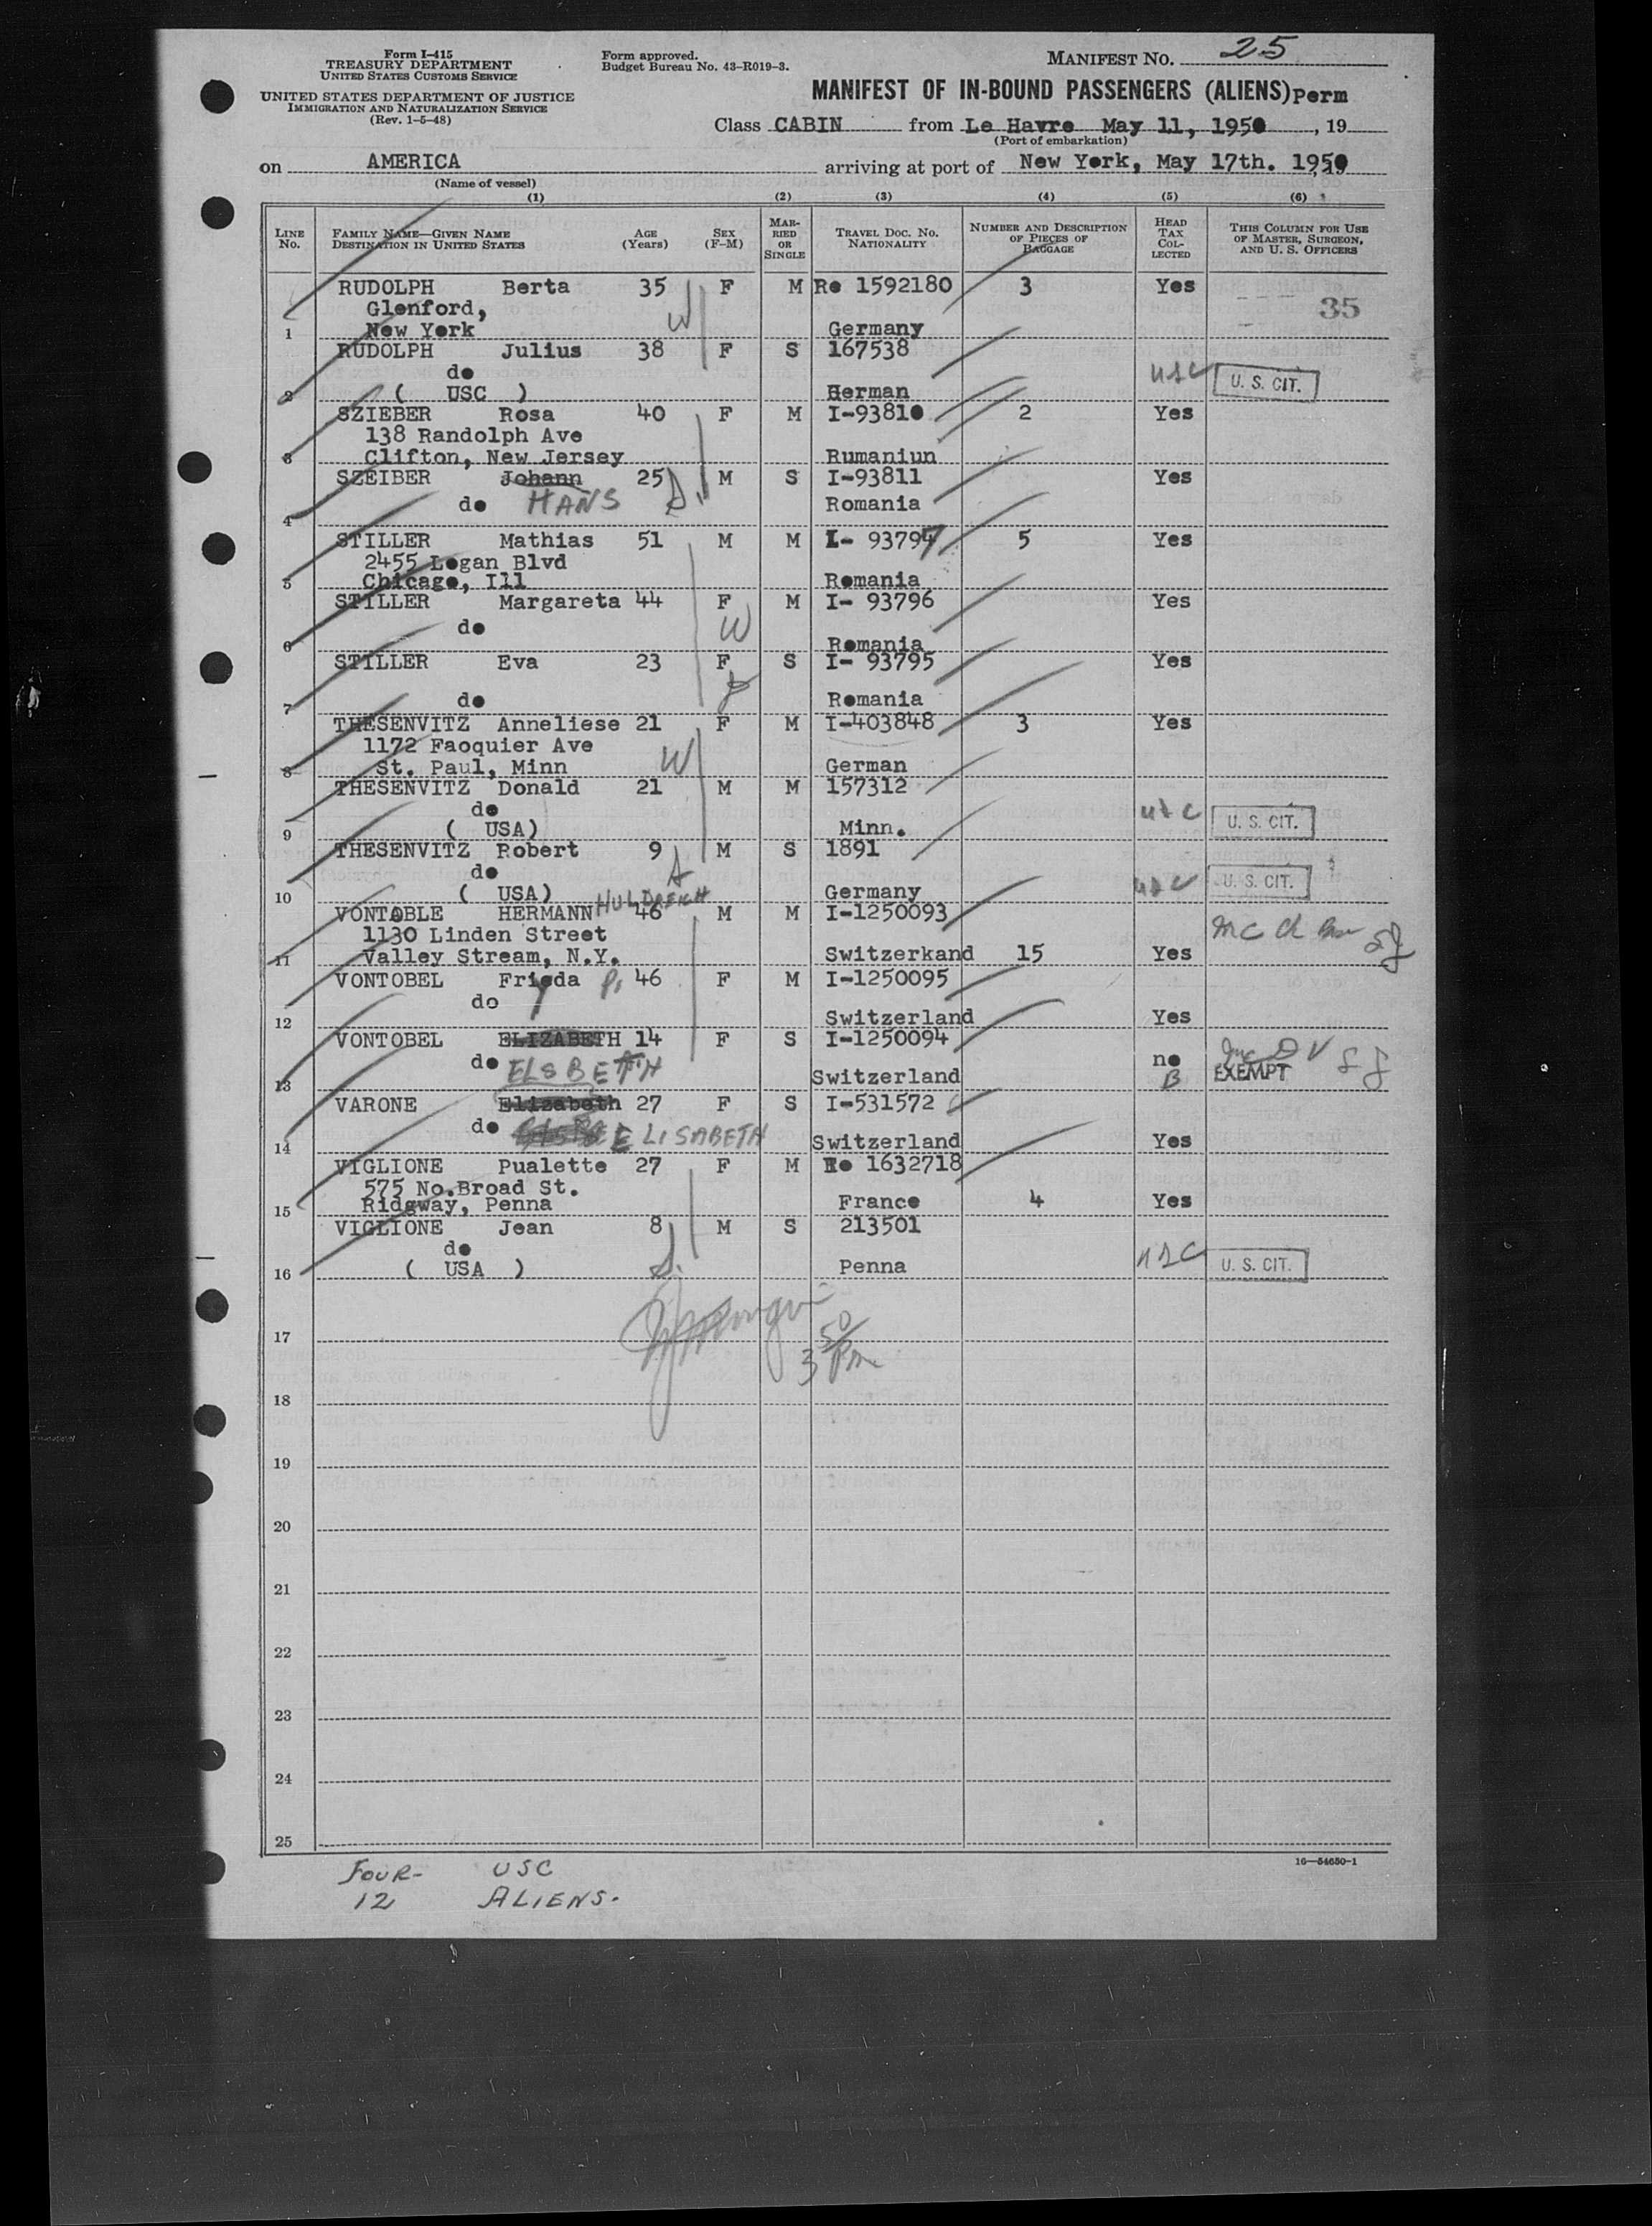 Form I-415
TREASURY DEPARTMENT
UNITED STATES CUSTOMS SERVICE
UNITED STATES DEPARTMENT OF JUSTICE
IMMIGRATION AND NATURALIZATION SERVICE
(Rev. 1-5-48)
Form approved.
Budget Bureau No. 43-R019-3.
MANIFEST NO. 25
MANIFEST OF IN-BOUND PASSENGERS (ALIENS) Perm
Class CABIN from Le Havre May 11, 1950, 19
(Port of embarkation)
on AMERICA arriving at port of New York, May 17th. 1950
(Name of vessel)
(1) (2) (3) (4) (5) (6)
LINE No. FAMILY NAME—GIVEN NAME DESTINATION IN UNITED STATES AGE (Years) SEX (F-M) MARRIED OR SINGLE TRAVEL DOC. NO. NATIONALITY NUMBER AND DESCRIPTION OF PIECES OF BAGGAGE HEAD TAX COLLECTED THIS COLUMN FOR USE OF MASTER, SURGEON, AND U. S. OFFICERS
RUDOLPH Berta 35 F M Re 1592180 3 Yes
Glenford, W 35
1 New York Germany
RUDOLPH Julius 38 F S 167538
do usc U. S. CIT.
2 ( USC ) German
SZIEBER Rosa 40 F M I-93810 2 Yes
138 Randolph Ave
3 Clifton, New Jersey Rumaniun
SZEIBER Johann 25 M S I-93811 Yes
4 do HANS Romania
STILLER Mathias 51 M M I- 93797 5 Yes
2455 Logan Blvd
5 Chicago, Ill Romania
STILLER Margareta 44 F M I- 93796 Yes
do W
6 Romania
STILLER Eva 23 F S I- 93795 Yes
7 do Romania
THESENVITZ Anneliese 21 F M I-403848 3 Yes
1172 Faoquier Ave W
8 St. Paul, Minn German
THESENVITZ Donald 21 M M 157312
do usc U. S. CIT.
9 ( USA) Minn.
THESENVITZ Robert 9 M S 1891
do usc U. S. CIT.
10 ( USA) Germany
VONTOBLE HERMANN HULDREICH 46 M M I-1250093
1130 Linden Street
11 Valley Stream, N.Y. Switzerkand 15 Yes
VONTOBEL Frieda P. 46 F M I-1250095
do
12 Switzerland Yes
VONTOBEL ELIZABETH 14 F S I-1250094
do ELSBETH no
13 Switzerland B EXEMPT
VARONE Elizabeth 27 F S I-531572
do ELISABETH
14 Switzerland Yes
VIGLIONE Pualette 27 F M Re 1632718
575 No.Broad St.
15 Ridgway, Penna France 4 Yes
VIGLIONE Jean 8 M S 213501
do usc U. S. CIT.
16 ( USA ) Penna
17 3 50 Pm
18
19
20
21
22
23
24
25
16—54650-1
FOUR- USC
12 ALIENS.